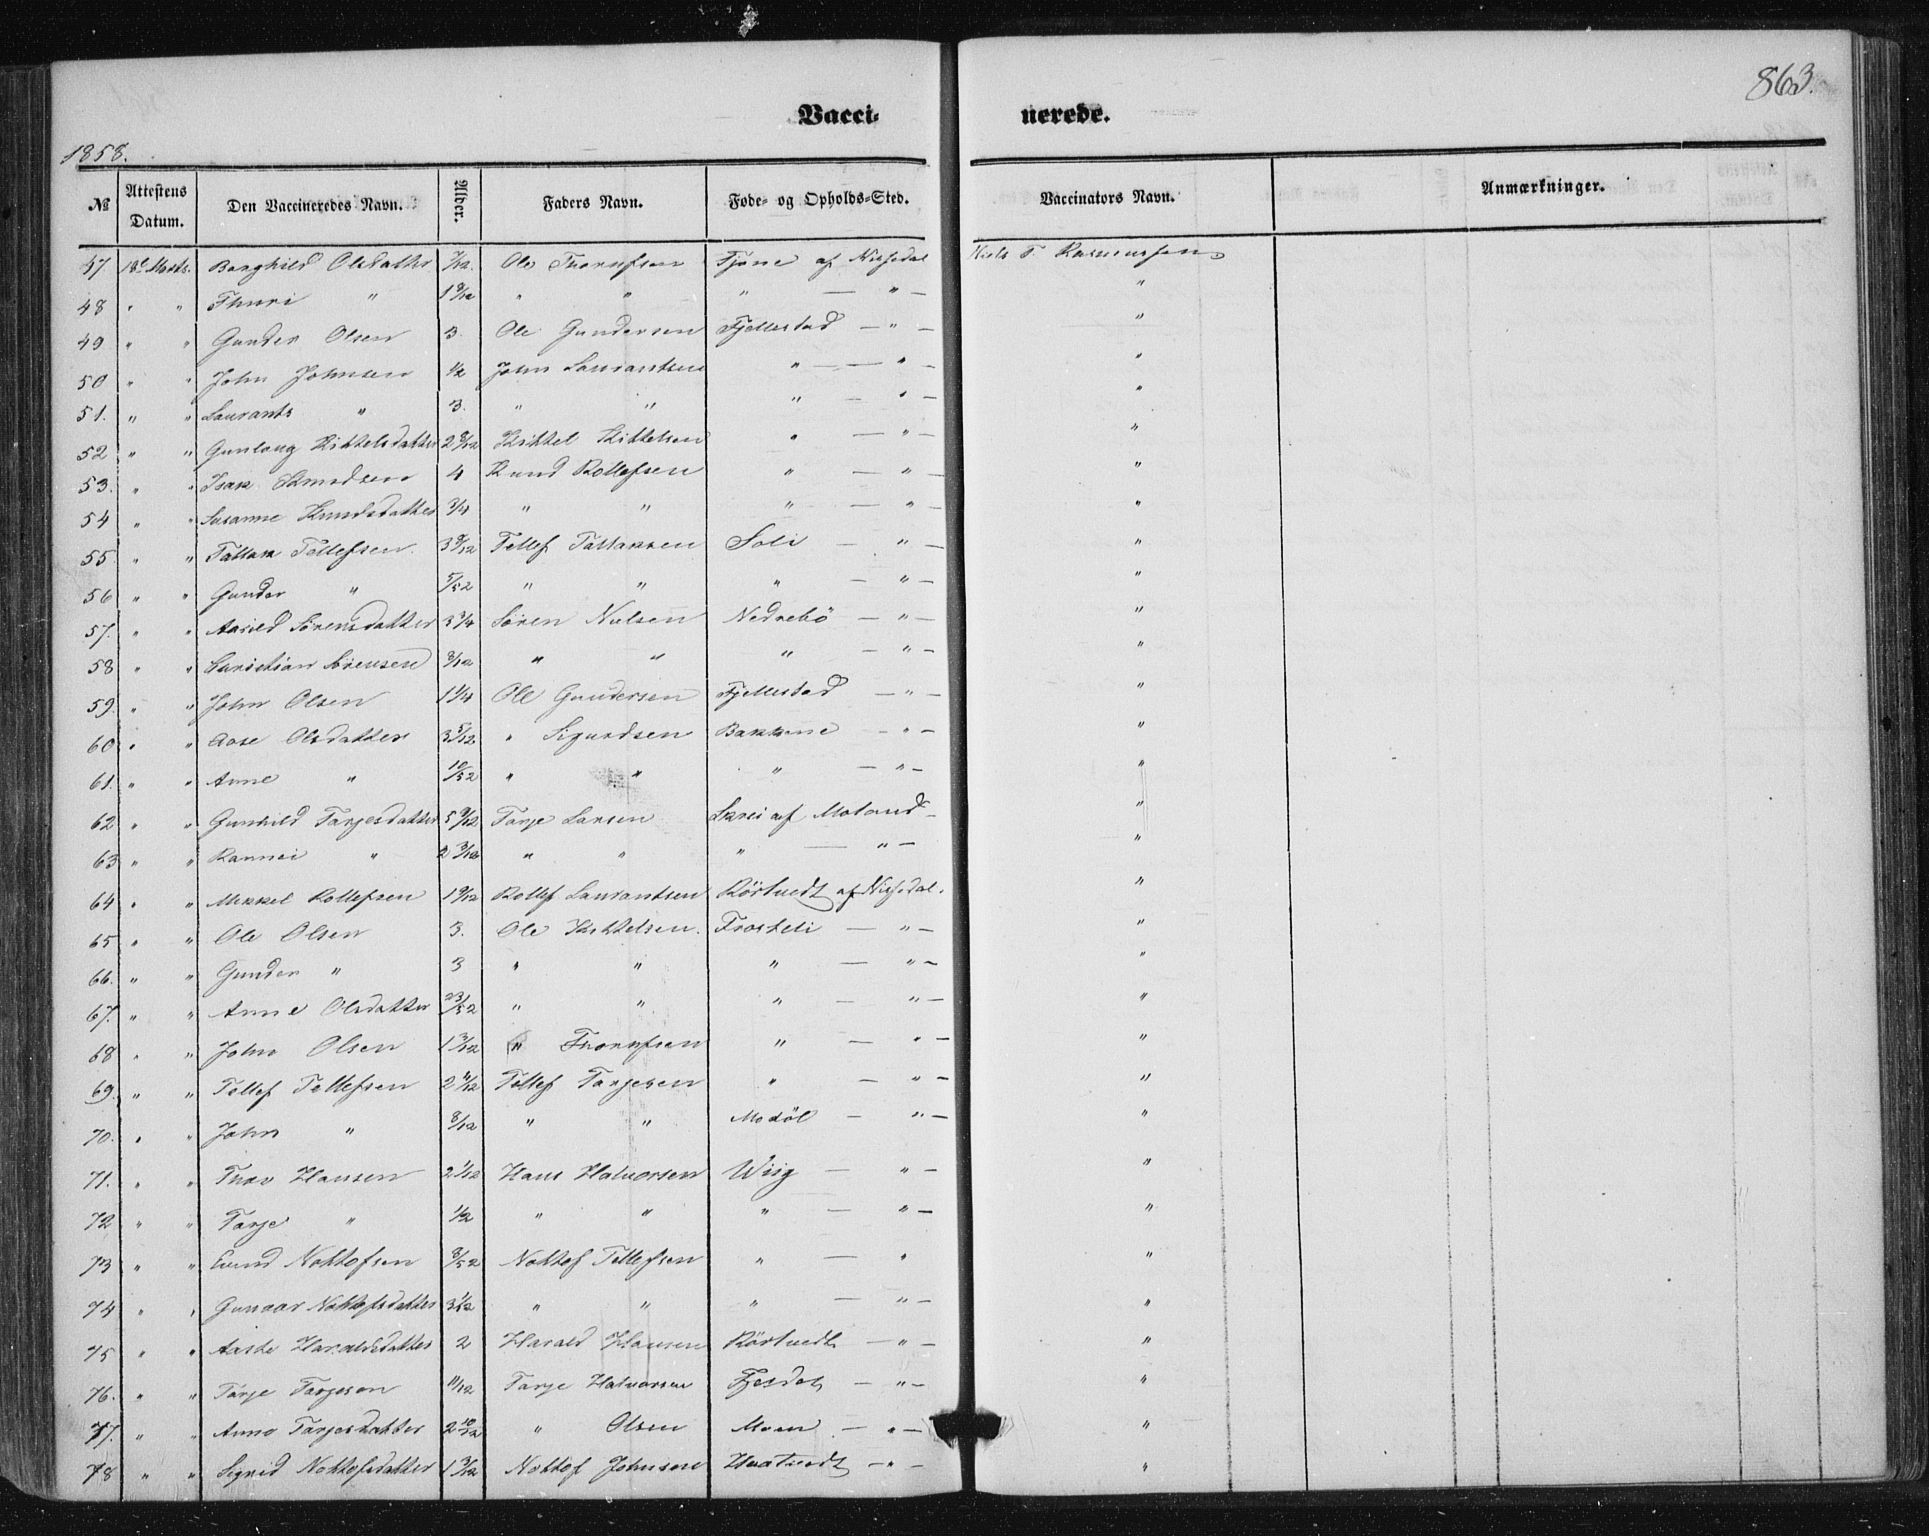 863.
Vacci- nerede.
1858.
№ Attestens Datum. Den Vaccineredes Navn. Alder. Faders Navn. Føde- og Opholds-Sted. Vaccinators Navn. Anmærkninger.
47 Borghild Olsdatter 7/12 Ole Tjone af Nissedal Niels T.
48 " " Thuri " 1 9/12 " " " — " — "
49 " " Gunder Olsen 3. Ole Gundersen Fjellestad — " — "
50 " " John Johnsen 1/2 John Laurantsen " — " "
51. " " Laurants " 3. " " " — " — "
52 " " Gunlaug Kittelsdatter 2 8/12 Kittel Kittelsen " — " — "
53. " " Isak Knudsen 4 Knud Rollefsen " — " — "
54 " " Susanne Knudsdatter 3/4 " " " — " — "
55. " " Tallak Tellefsen 3 9/12 Tellef Tallaksen Soli — " — "
56 " " Gunder " 5/52 " " " — " — "
57. " " Sørensdatter 5 3/4 Søren Nielsen Nedrebö — " — "
58 " " Christian Sørensen 8/12 " " " — " — "
59. " " John Olsen 1 1/4 Ole Gundersen Fjellestad — " — "
60 " " Aase Olsdatter 3 5/12 " Sigurdsen Bakkene — " — "
61. " " Anne " 10/52 " " " — " — "
62 " " Gunhild Tarjesdatter 5 9/12 Tarje Larsen af Moland — "
63 " " Rannei " 2 3/12 " " " — " — "
64 " " Mikkel Rollefsen 1 9/12 Rollef Laurantsen Rörtvedt af Nissedal. "
65 " " Ole Olsen 3. Ole Kittelsen. Frosteli — " — "
66. " " Gunder " 3 " " " — " — "
67. " " Anne Olsdatter 23/52 " " " — " — "
68 " " John Olsen 1 3/12 " " — " — "
69. " " Tellef Tellefsen 2 11/12 Tellef Tarjesen " — " — "
70. " " John " 8/12 " " — " — "
71. " " Thor Hansen 2 1/12 Hans Halvorsen Wiig — " — "
72 " " Tarje " 1/2 " " " — " — "
73 " " Evend Nottofsen 8/52 Nottof Tellefsen " — " "
74 " " Gunvor Nottofsdatter 3 1/2 " " " — " — "
75 " " Aaste Haraldsdatter 2 Harald Hansen Rörtvedt — " — "
76. " " Tarje Tarjesen 11/12 Tarje Halvorsen — " — "
77. " " Anne Tarjesdatter 2 10/12 " Olsen Moen — " — "
78 " " Sigrid Nottofsdatter 1 3/12 Nottof Johnsen — " — "